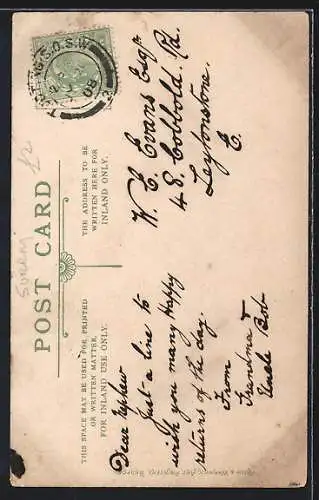 POST CARD
THIS SPACE MAY BE USED FOR PRINTED
OR WRITTEN MATTER,
FOR INLAND USE ONLY.
THE ADDRESS TO BE
WRITTEN HERE FOR
INLAND ONLY.
Surrey
Dear Nephew
Just a line to
wish you many Happy
returns of the day.
From
Grandma &
Uncle Bob
W. E. Evans Esqr
48. Cobbold Rd.
Leytonstone.
E.